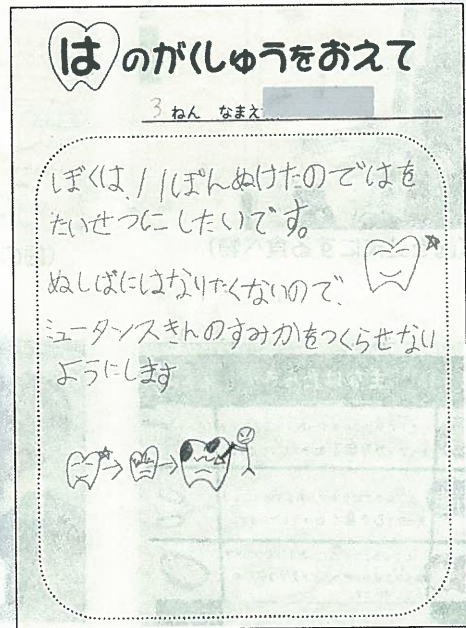 はのがくしゅうをおえて
3ねん なまえ
ぼくは、11ぽんぬけたのではを
たいせつにしたいです。
ぬしばにはなりたくないので、
ミュータンスきんのすみかをつくらせない
ようにします